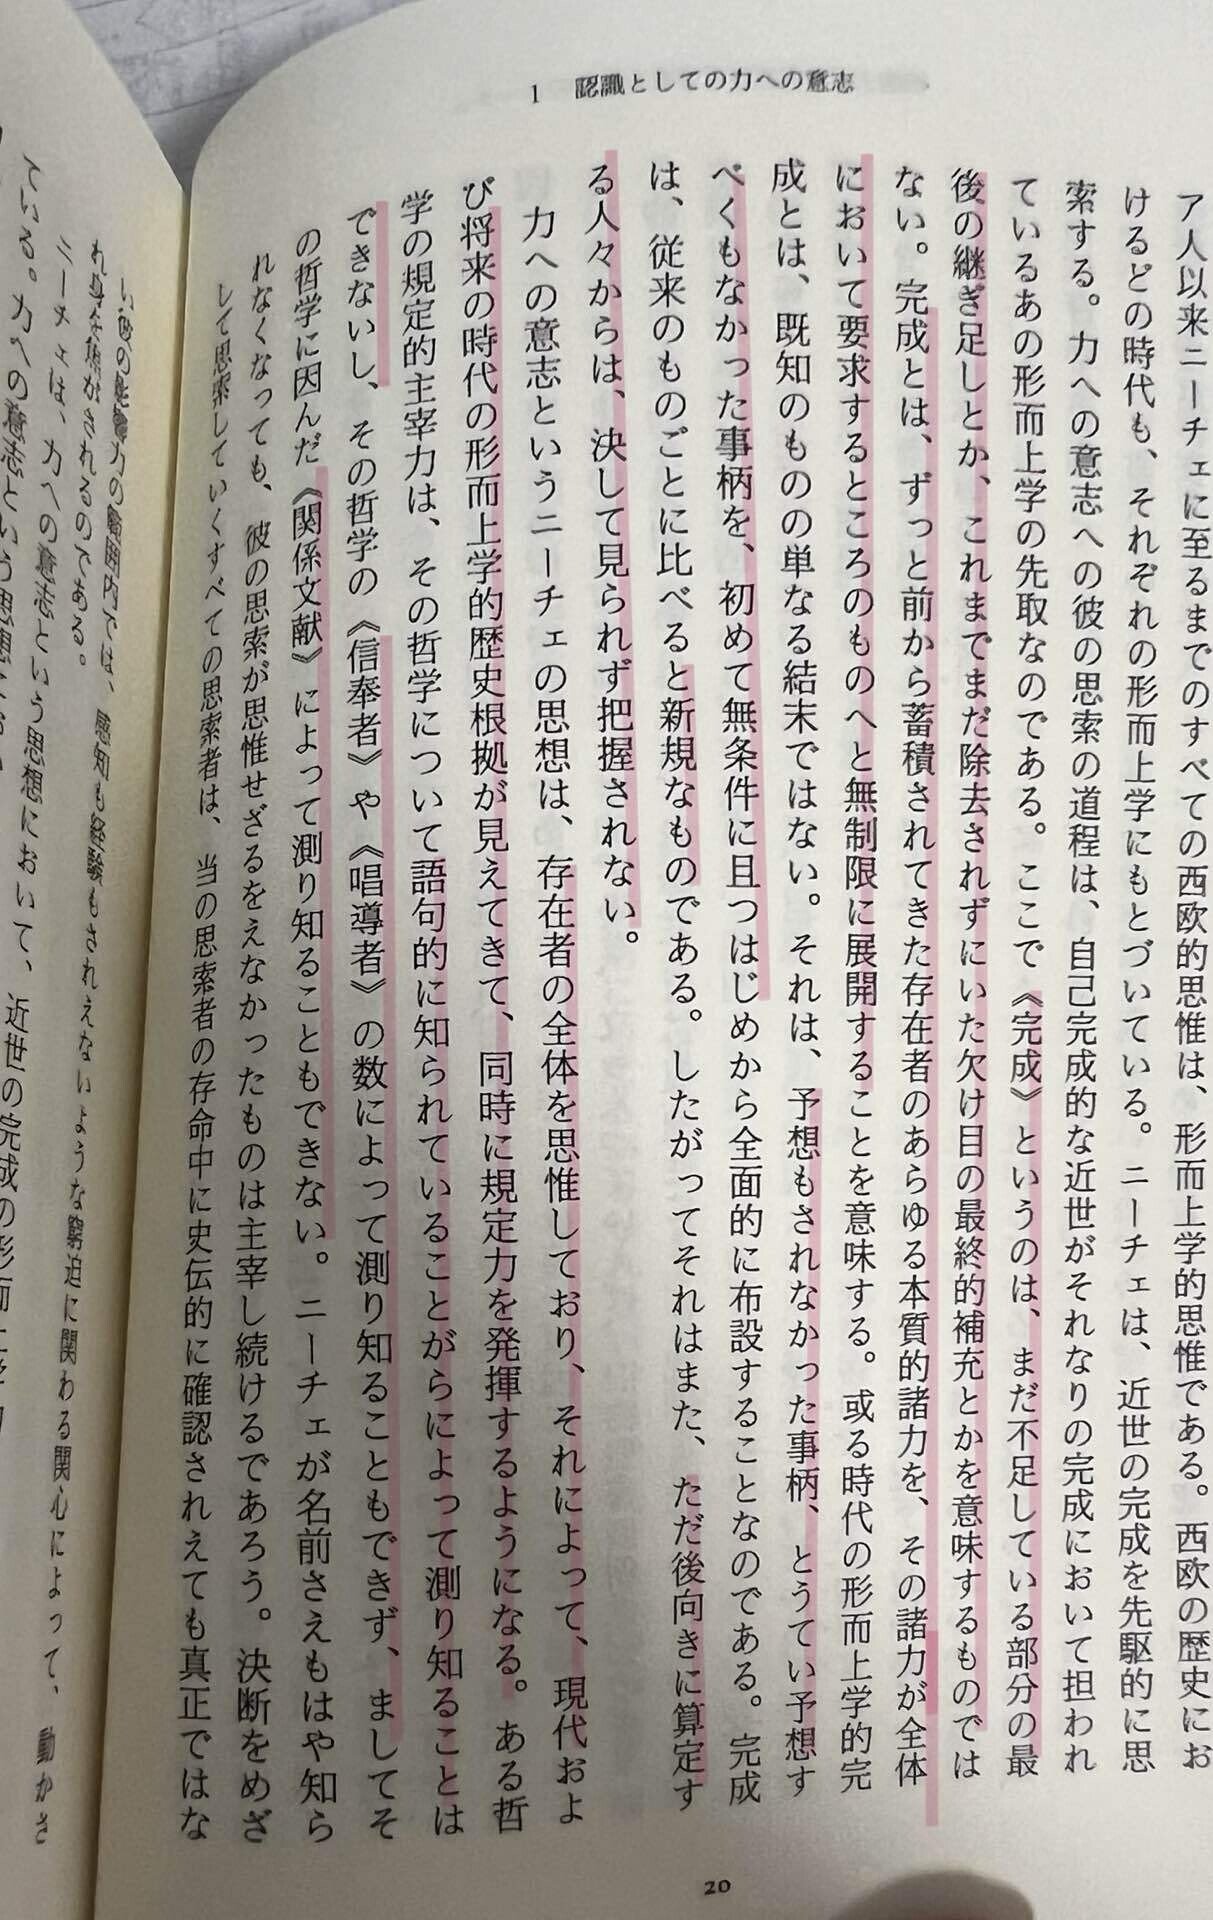 1 認識としての力への意志
ア人以来ニーチェに至るまでのすべての西欧的思惟は、形而上学的思惟である。西欧の歴史にお
けるどの時代も、それぞれの形而上学にもとづいている。ニーチェは、近世の完成を先駆的に思
索する。力への意志への彼の思索の道程は、自己完成的な近世がそれなりの完成において担われ
ているあの形而上学の先取なのである。ここで《完成》というのは、まだ不足している部分の最
後の継ぎ足しとか、これまでまだ除去されずにいた欠け目の最終的補充とかを意味するものでは
ない。完成とは、ずっと前から蓄積されてきた存在者のあらゆる本質的諸力を、その諸力が全体
において要求するところのものへと無制限に展開することを意味する。或る時代の形而上学的完
成とは、既知のものの単なる結末ではない。それは、予想もされなかった事柄、とうてい予想す
べくもなかった事柄を、初めて無条件に且つはじめから全面的に布設することなのである。完成
は、従来のものごとに比べると新規なものである。したがってそれはまた、ただ後向きに算定す
る人々からは、決して見られず把握されない。
力への意志というニーチェの思想は、存在者の全体を思惟しており、それによって、現代およ
び将来の時代の形而上学的歴史根拠が見えてきて、同時に規定力を発揮するようになる。ある哲
学の規定的主宰力は、その哲学について語句的に知られていることがらによって測り知ることは
できないし、その哲学の《信奉者》や《唱導者》の数によって測り知ることもできず、ましてそ
の哲学に因んだ《関係文献》によって測り知ることもできない。ニーチェが名前さえもはや知ら
れなくなっても、彼の思索が思惟せざるをえなかったものは主宰し続けるであろう。決断をめざ
して思索していくすべての思索者は、当の思索者の存命中に史伝的に確認されえても真正ではな
20
い彼の影響力の範囲内では、感知も経験もされえないような窮迫に関わる関心によって、動かさ
れ
されるのである。
ニーチェは、力への意志という思想において、近世の完成の形而上学
ている。力への意志という思想